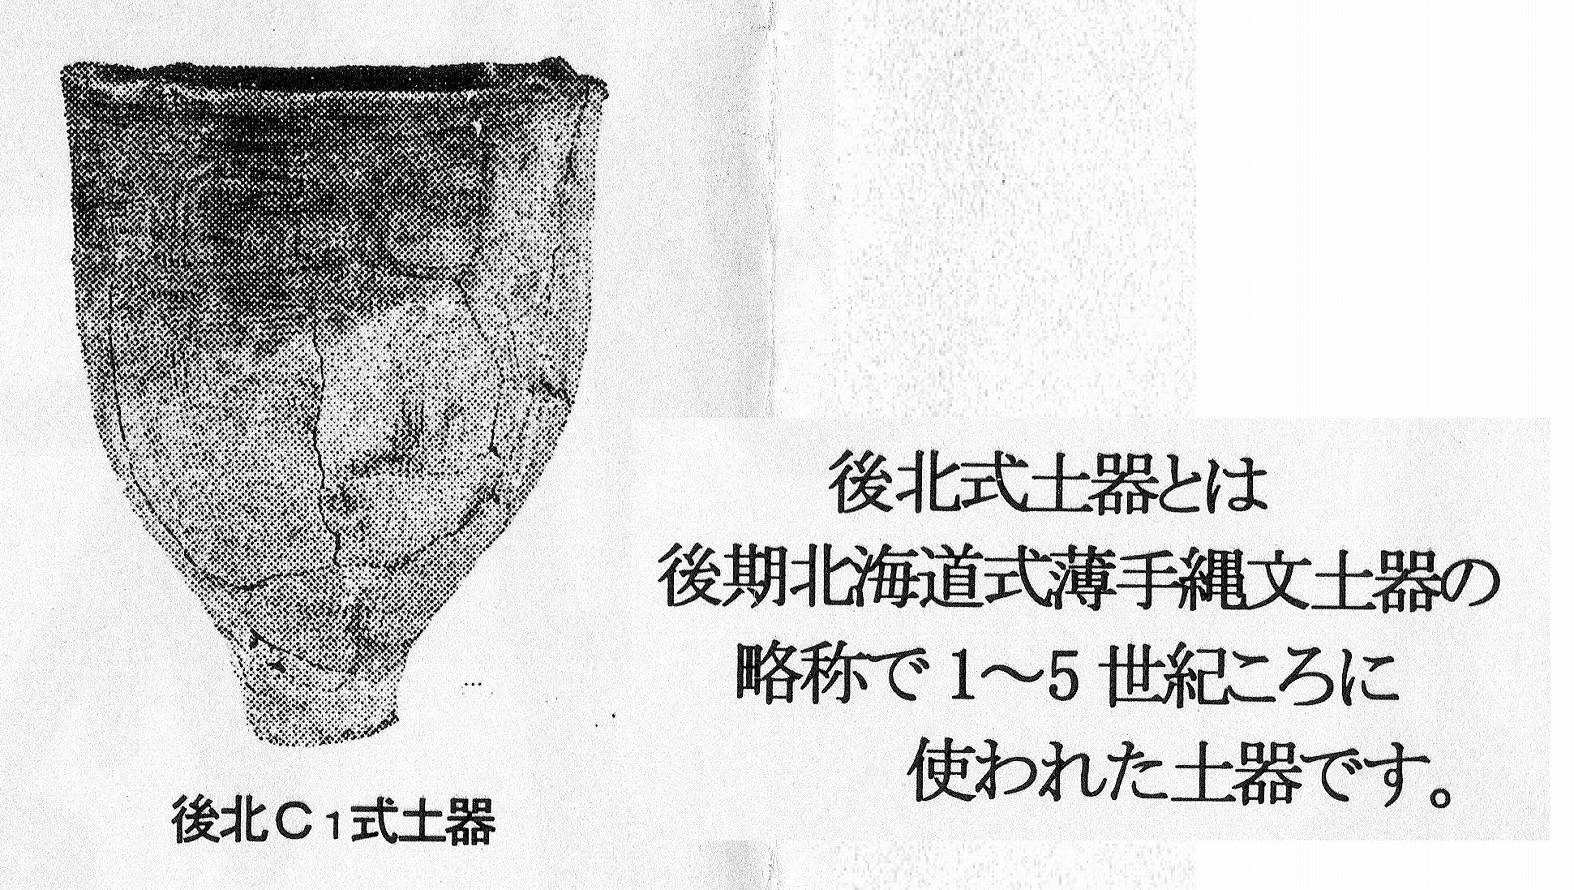 後北式土器とは
後期北海道式薄手縄文土器の
略称で1～5世紀ころに
使われた土器です。
後北C1式土器